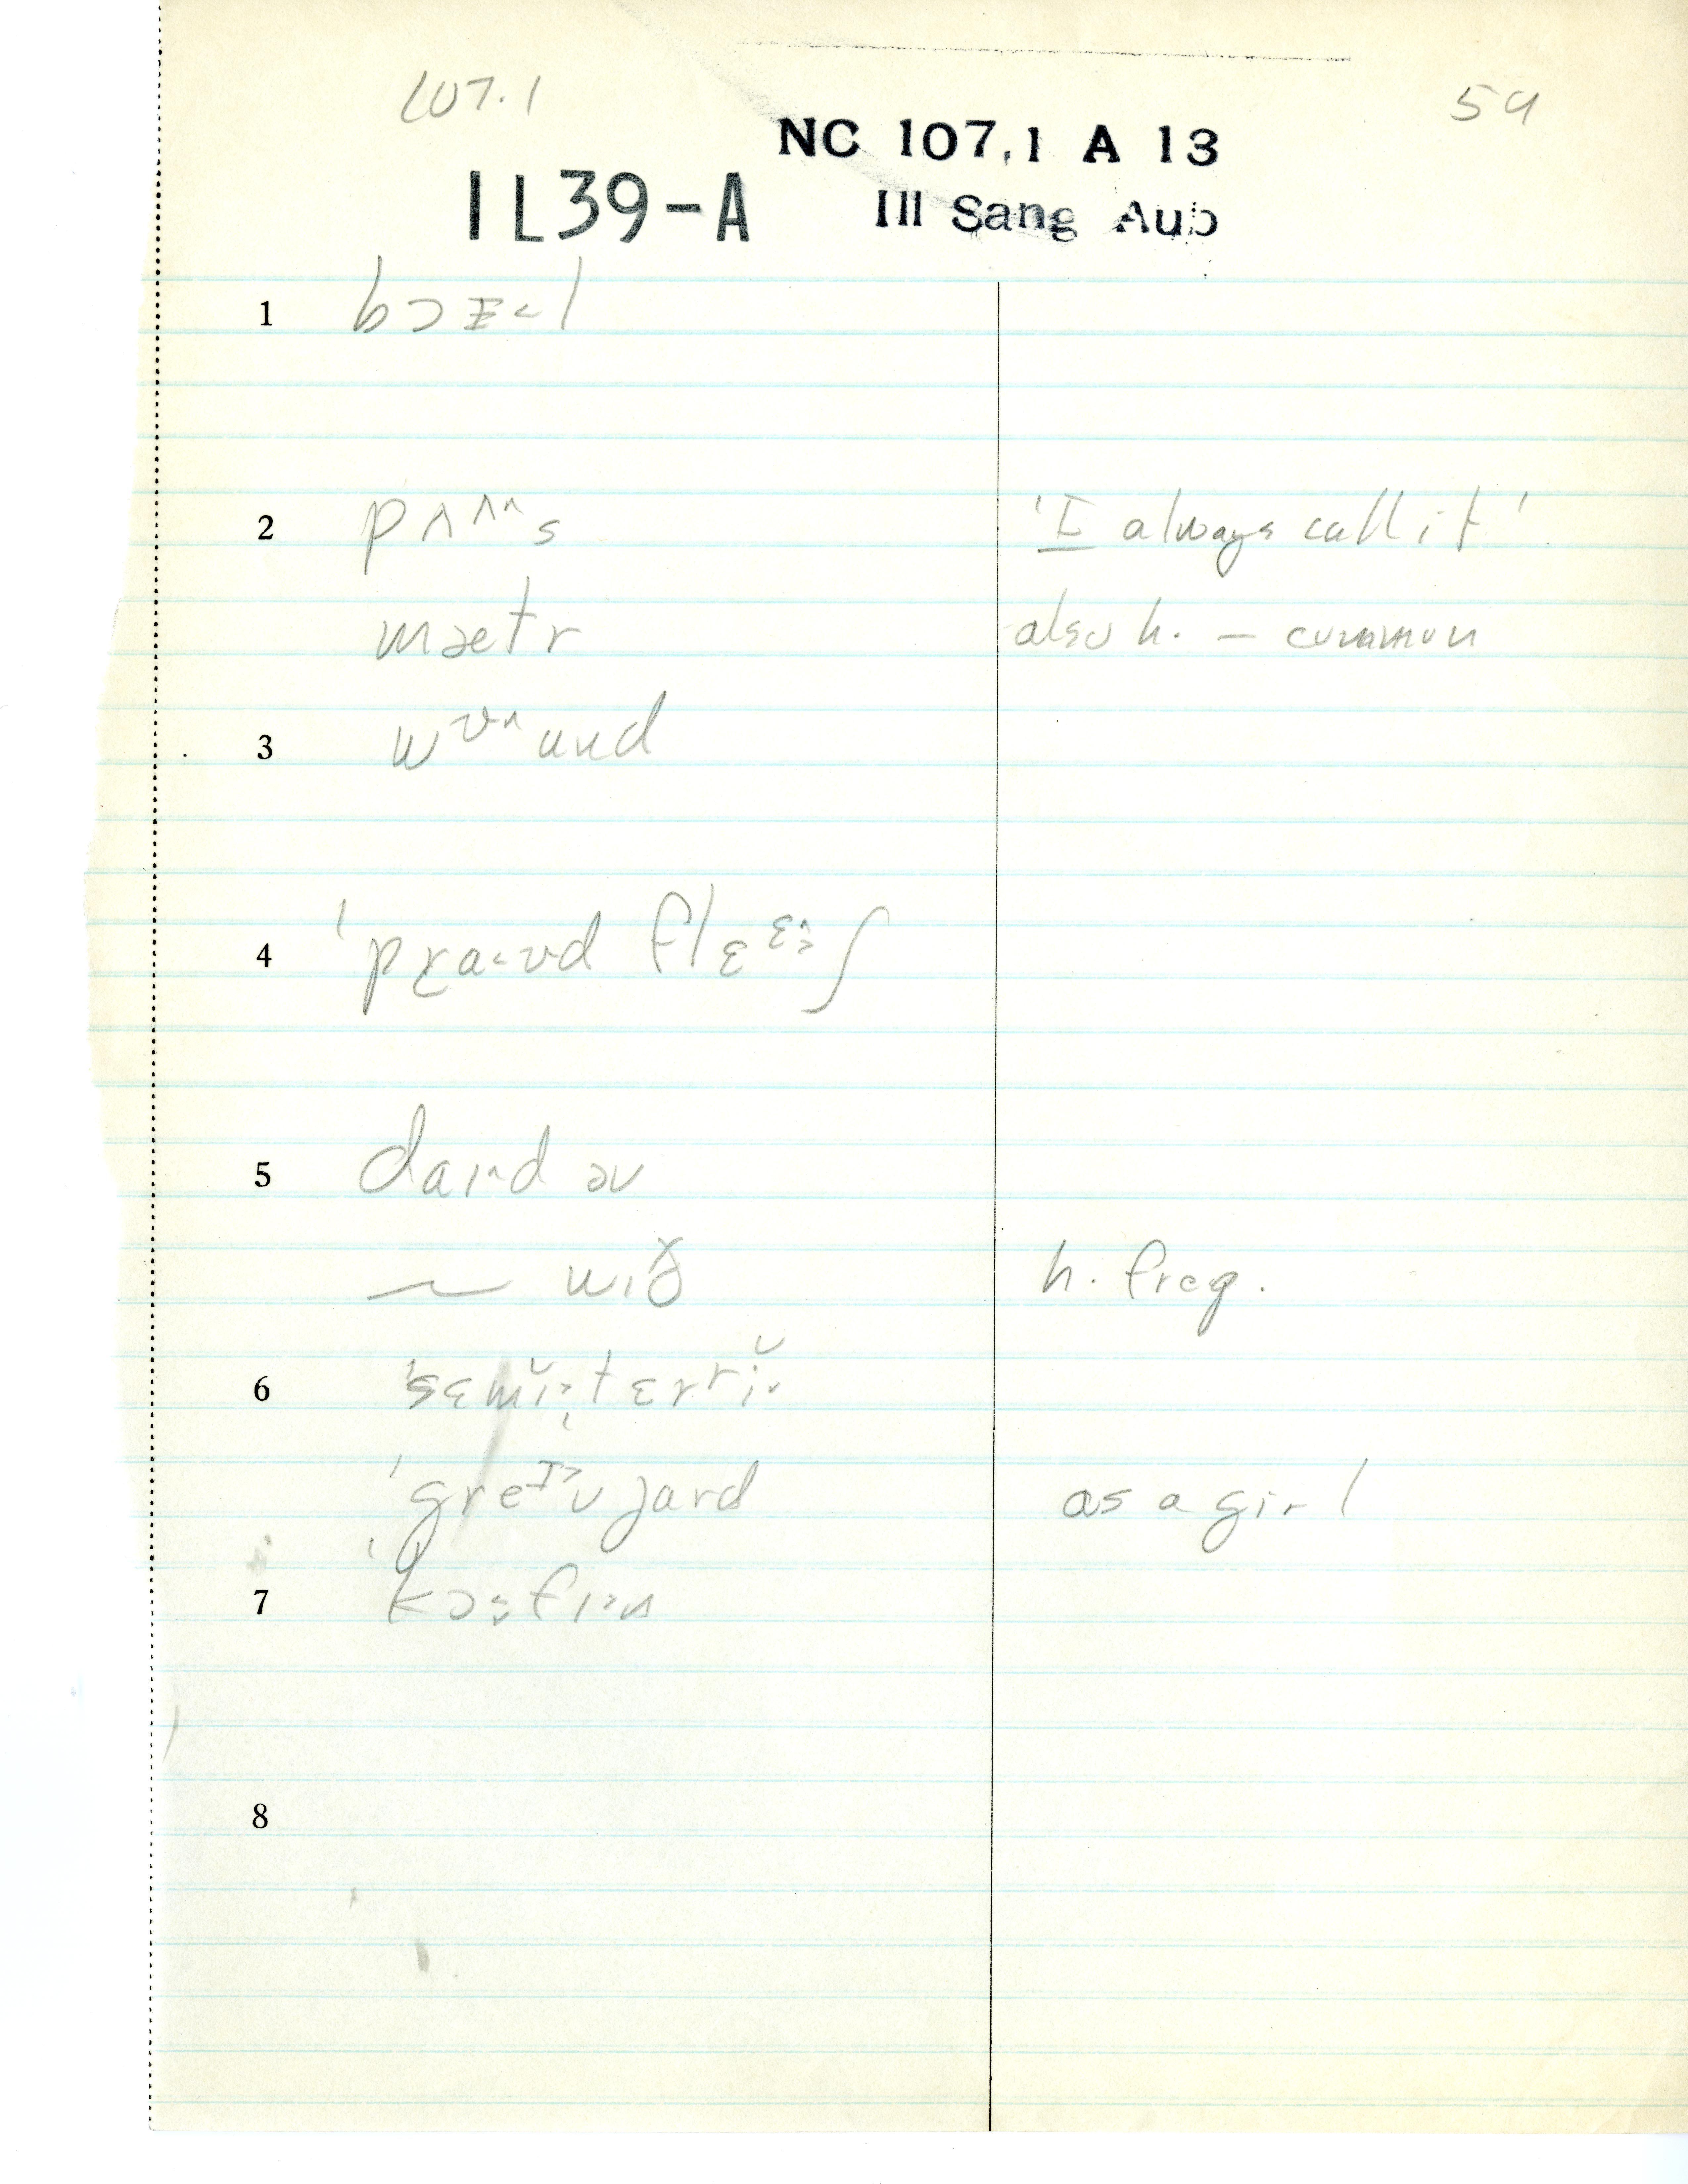 107.1
59
NC 107.1 A 13
IL39-A
Ill Sang Aub
1 bɔɪ˂l
2 pʌʌ^s 'I always call it'
mætr also h. – common
3 wʊ^und
4 'pra˂ʊd flɛɛ˃ʃ
5 daɪ^d əv
~ wɪð h. freq.
6 'sɛmĭ˃ˌtɛrrĭ˒
'greɪ˃vjard as a girl 
7 'kɔ˃fɪ˃n
8